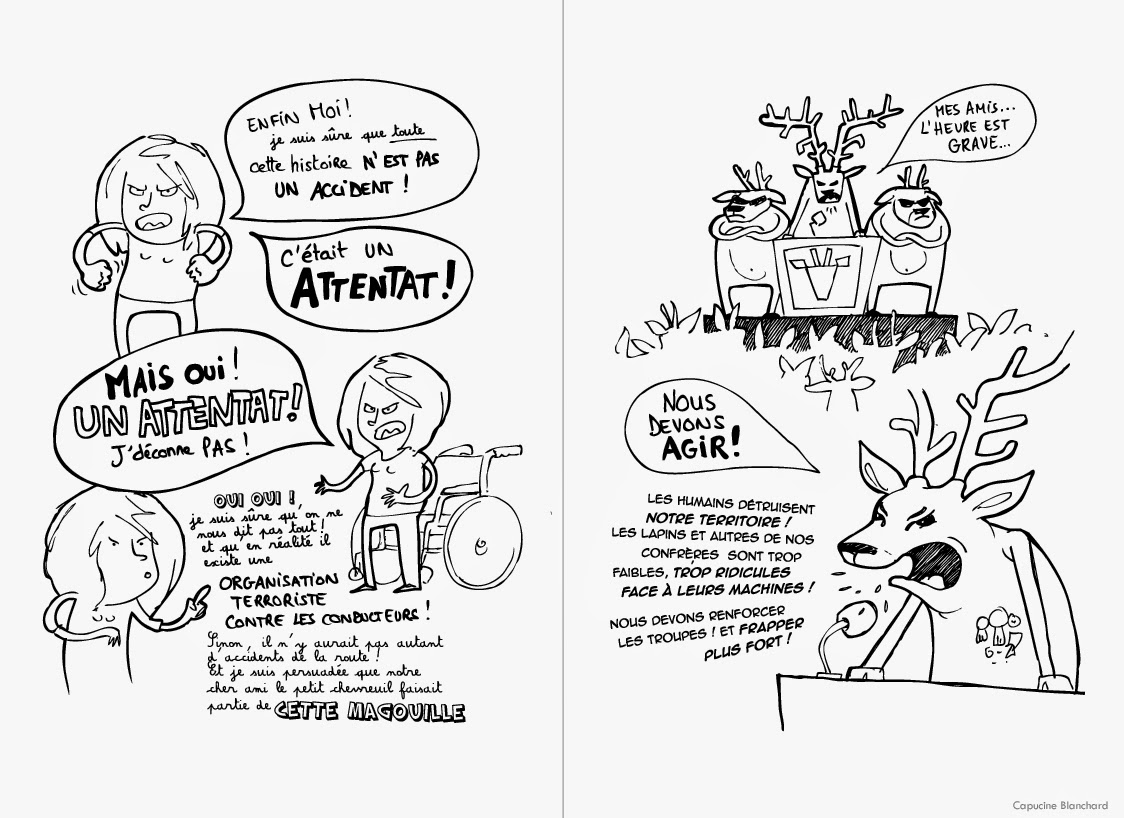 ENFIN MOI!
je suis sûre que toute
cette histoire N'EST PAS
UN ACCIDENT !
C'était UN
ATTENTAT!
MAIS OUI!
UN ATTENTAT!
J'déconne PAS !
OUI OUI !
je suis sûre qu'on ne
nous dit pas tout!
et qu'en réalité il
existe une
ORGANISATION
TERRORISTE
CONTRE LES CONDUCTEURS !
Sinon, il n'y aurait pas autant
d'accidents de la route !
Et je suis persuadée que notre
cher ami le petit chevreuil faisait
partie de CETTE MAGOUILLE
MES AMIS...
L'HEURE EST
GRAVE...
NOUS
DEVONS
AGIR!
LES HUMAINS DÉTRUISENT
NOTRE TERRITOIRE !
LES LAPINS ET AUTRES DE NOS
CONFRÈRES SONT TROP
FAIBLES, TROP RIDICULES
FACE À LEURS MACHINES !
NOUS DEVONS RENFORCER
LES TROUPES ! ET FRAPPER
PLUS FORT !
Capucine Blanchard